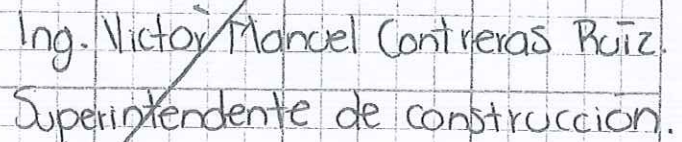 Ing. Victor Manuel Contreras Ruiz.
Superintendente de construccion.